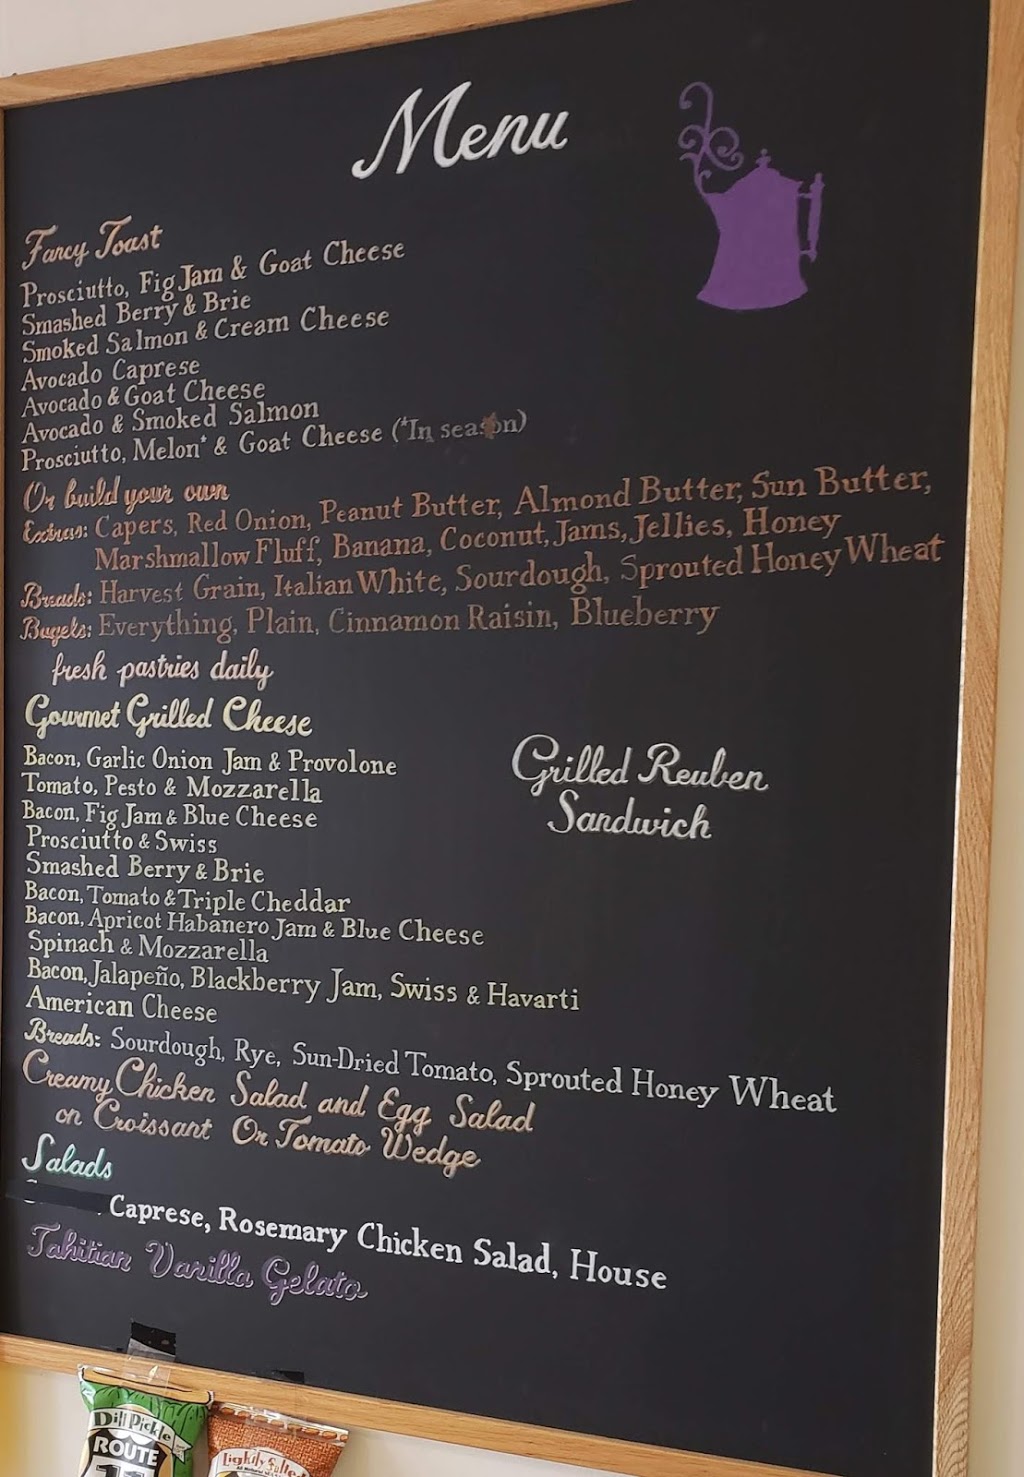 Menu
Fancy Toast
Prosciutto, Fig Jam & Goat Cheese
Smashed Berry & Brie
Smoked Salmon & Cream Cheese
Avocado Caprese
Avocado & Goat Cheese
Avocado & Smoked Salmon
Prosciutto, Melon* & Goat Cheese (*In season)
Or build your own
Extras: Capers, Red Onion, Peanut Butter, Almond Butter, Sun Butter,
Marshmallow Fluff, Banana, Coconut, Jams, Jellies, Honey
Breads: Harvest Grain, Italian White, Sourdough, Sprouted Honey Wheat
Bagels: Everything, Plain, Cinnamon Raisin, Blueberry
fresh pastries daily
Gourmet Grilled Cheese
Bacon, Garlic Onion Jam & Provolone
Tomato, Pesto & Mozzarella
Bacon, Fig Jam & Blue Cheese
Prosciutto & Swiss
Smashed Berry & Brie
Bacon, Tomato & Triple Cheddar
Bacon, Apricot Habanero Jam & Blue Cheese
Spinach & Mozzarella
Bacon, Jalapeño, Blackberry Jam, Swiss & Havarti
American Cheese
Breads: Sourdough, Rye, Sun-Dried Tomato, Sprouted Honey Wheat
Grilled Reuben
Sandwich
Creamy Chicken Salad and Egg Salad
on Croissant Or Tomato Wedge
Salads
Caprese, Rosemary Chicken Salad, House
Tahitian Vanilla Gelato
Dill Pickle
ROUTE
11
Lightly Salted